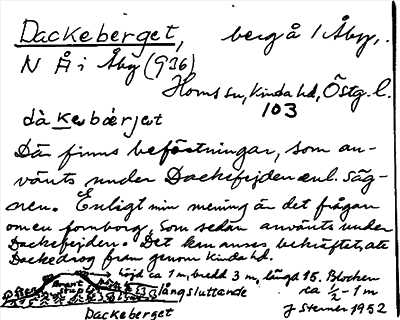 Dackeberget, berg å 1 Åby,.
N Å i Åby (936)
Horns sn, Kinda hd, Östg. l.
103
dàkebærjet
Där finns befästningar, som an-
vänts under Dackefejden enl. säg-
nen. Enligt min mening är det frågan
om en fornborg, som sedan använts under
Dackefejden. Det kan anses bekräftat, att
Dackedrog fram genom Kinda hd.
Höjd ca 1 m, bredd 3 m, längd 15. Blocken
Brant stup långsluttande ca ½-1 m
Dackeberget J Stenner 1952